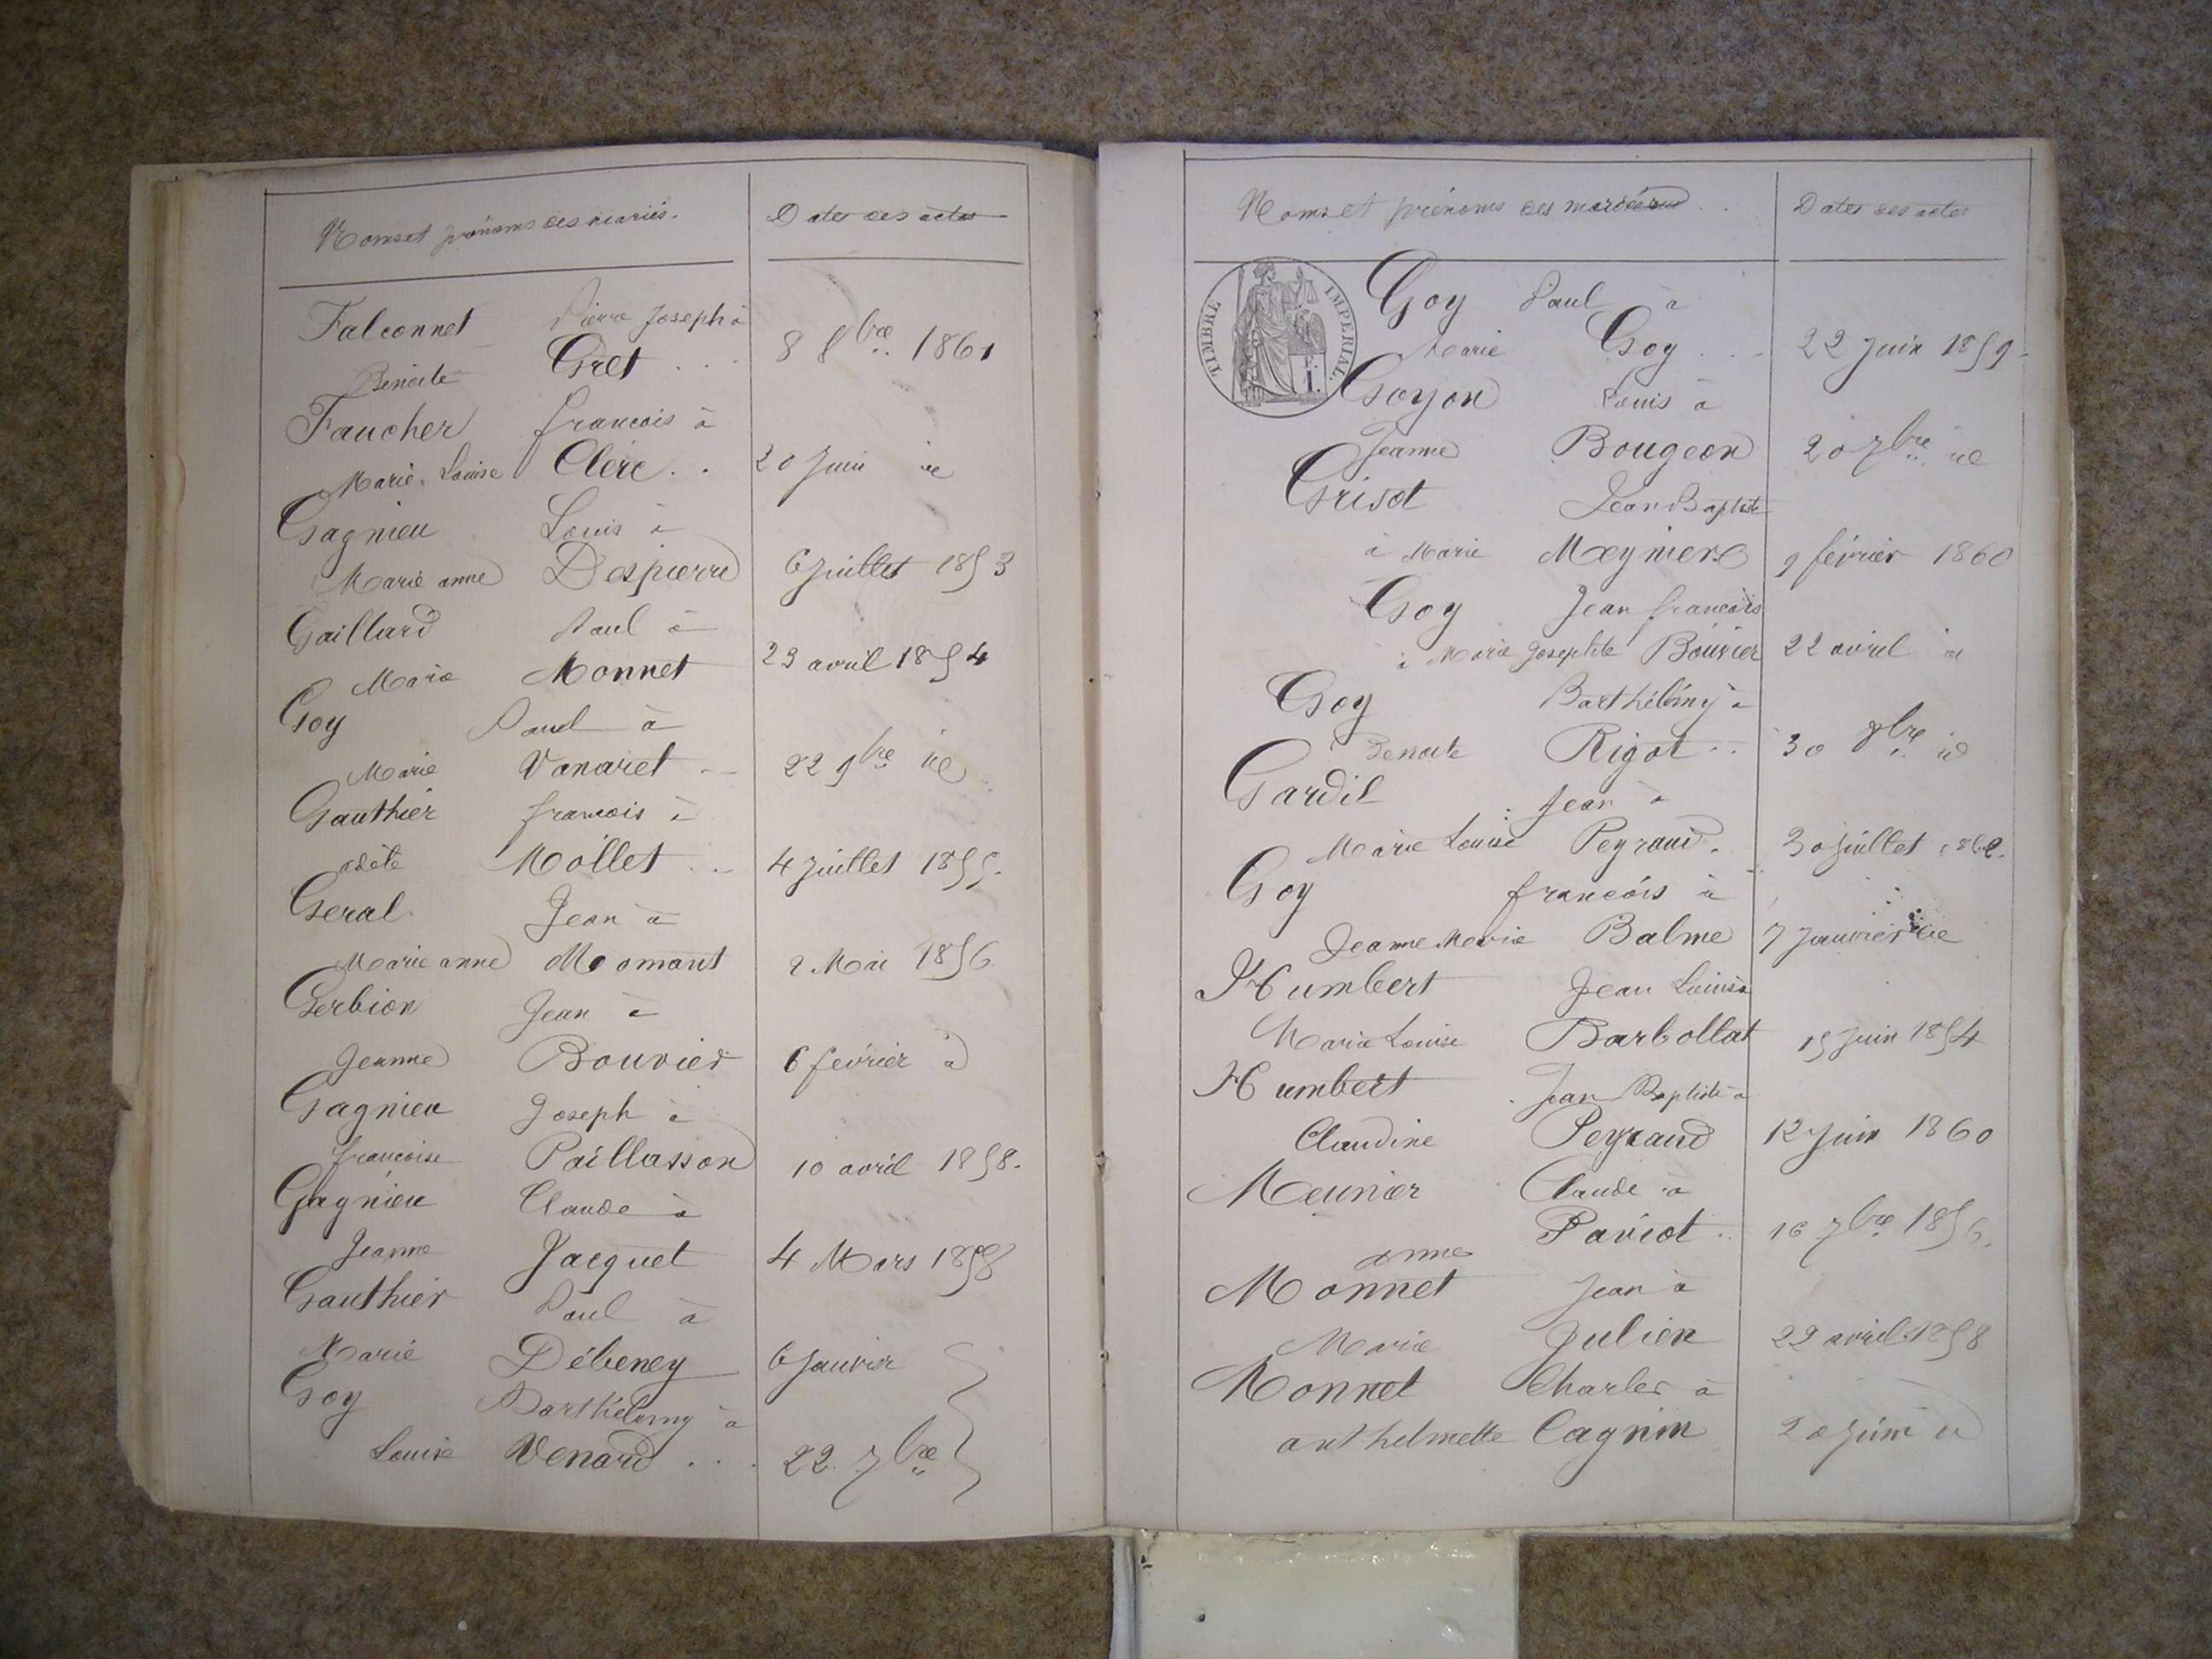 Noms et prénoms des mariés.
Dates des actes
Falconnet Pierre Joseph à
Benoite Gret . . . 8 8bre 1861
Faucher francois à
Marie Louise Clerc . . 20 Juin id
Gagnieu Louis à
Marie anne Despierre 6 Juillet 1853
Gaillard Paul à
Marie Monnet 23 avril 1854
Goy Paul à
Marie Vanaret 22 9bre id
Gauthier francois à
adèle Mollet 4 Juillet 1855.
Geral Jean à
Marie anne Momant 2 Mai 1856
Gerbion Jean à
Jeanne Bouvier 6 février id
Gagnieu Joseph à
francoise Paillasson 10 avril 1858.
Gagnieu Claude à
Jeanne Jacquet 4 Mars 1858
Gauthier Paul à
Marie Débeney 6 Janvier
Goy Barthélemy à
Louise Venard . . . 22 7bre
Noms et prénoms des
Dates des actes
TIMBRE IMPERIAL
Goy Paul à
Marie Goy . . . 22 Juin 1859.
Goyon Louis à
Jeanne Bougeon 20 7bre id
Grisot Jean Baptiste
à Marie Meyniere 9 février 1860
Goy Jean francois
à Marie Josephte Bouvier 22 avril id
Goy Barthélémy à
Benoite Rigot . . 30 8bre id
Gardil Jean à
Marie Louise Peyraud . 30 Juillet 1862.
Goy francois à
Jeanne Marie Balme 7 Janvier id
Humbert Jean Louis à
Marie Louise Barbollat 15 Juin 1854
Humbert Jean Baptiste à
Claudine Peyraud 12 Juin 1860
Meunier Claude à
anne Pariot . . 16 7bre 1856.
Monnet Jean à
Marie Julien 22 avril 1858
Monnet Charles à
anthelmette Cagnin 20 Juin id